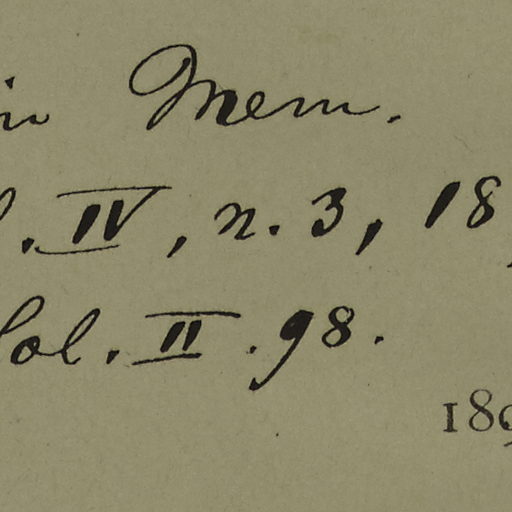 in Mem.
. IV, n. 3, 18
Col. II. 98.
189